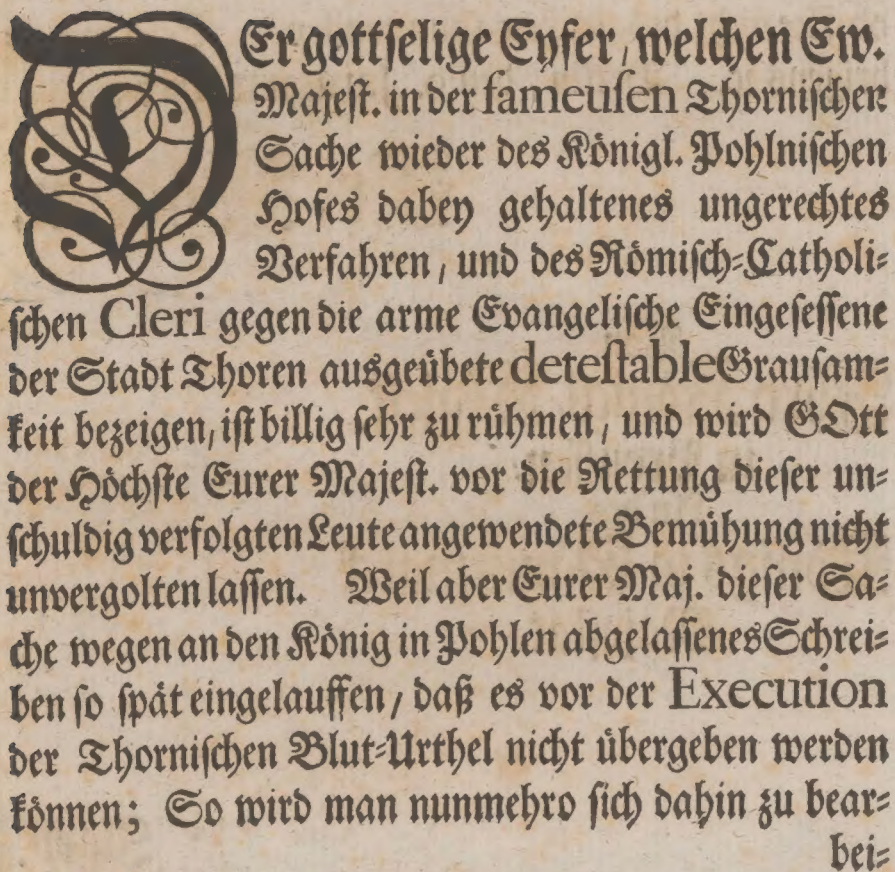 DEr gottſelige Eyfer, welchen Ew.
Majeſt. in der fameuſen Thorniſchen
Sache wieder des Königl. Pohlniſchen
Hofes dabey gehaltenes ungerechtes
Verfahren, und des Römiſch-Catholi-
ſchen Cleri gegen die arme Evangeliſche Eingeſeſſene
der Stadt Thoren ausgeübete deteſtable Grauſam-
keit bezeigen, iſt billig ſehr zu rühmen, und wird GOtt
der Höchſte Eurer Majeſt. vor die Rettung dieſer un-
ſchuldig verfolgten Leute angewendete Bemühung nicht
unvergolten laſſen. Weil aber Eurer Maj. dieſer Sa-
che wegen an den König in Pohlen abgelaſſenes Schrei-
ben ſo ſpät eingelauffen, daß es vor der Execution
der Thorniſchen Blut-Urthel nicht übergeben werden
können; So wird man nunmehro ſich dahin zu bear-
bei-